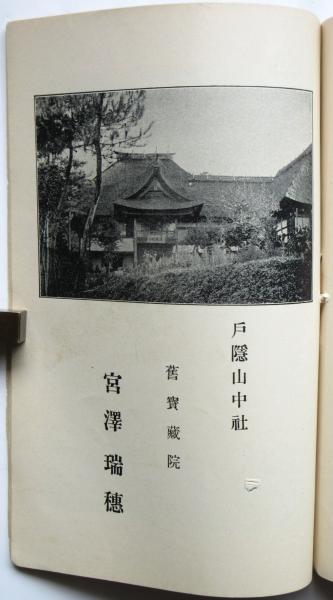 戶隱山中社
舊寶藏院
宮澤瑞穗